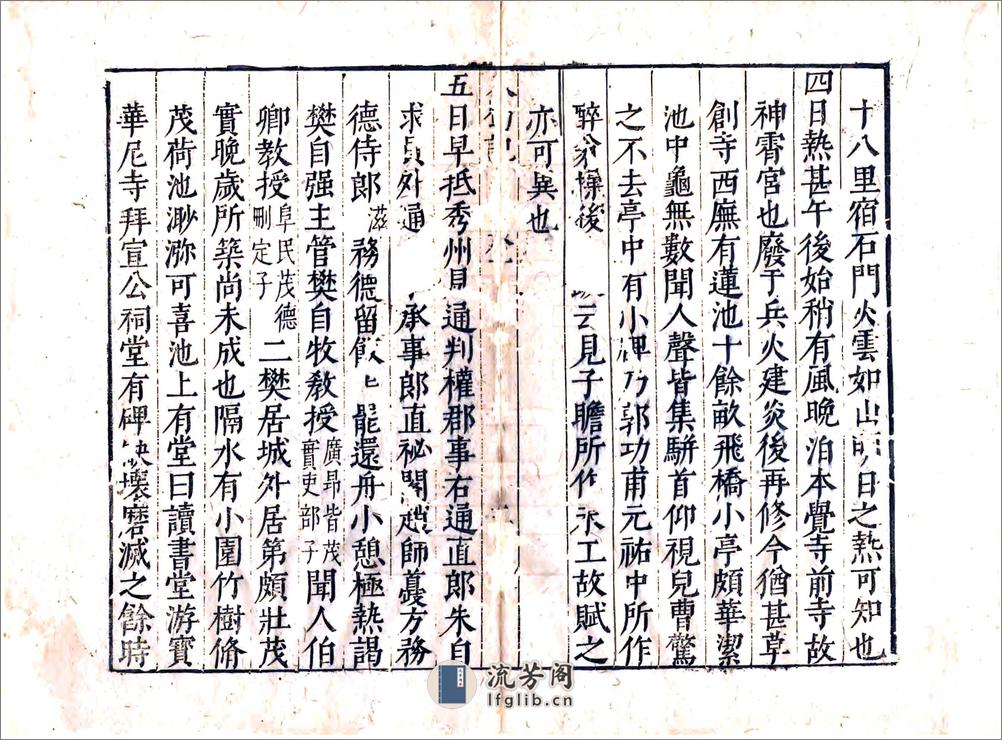 十八里宿石門火雲如山明日之熱可知也
四日熱甚午後始稍有風晚泊本覺寺前寺故
神霄宮也廢于兵火建炎後再修今猶甚草
創寺西廡有蓮池十餘畝飛橋小亭頗華潔
池中龜無數聞人聲皆集駢首仰視兒曹驚
之不去亭中有小碑乃郭功甫元祐中所作
醉翁操後云見子瞻所作未工故賦之
亦可異也
五日早抵秀州見通判權郡事右通直郎朱自
求員外通承事郎直祕閣趙師夔方務
德侍郎滋務德留飯能還舟小憩極熱謁
樊自强主管樊自牧敎授廣昂皆茂實吏部子聞人伯
卿教授阜民茂德刪定子二樊居城外居第頗壯茂
實晚歲所築尚未成也隔水有小園竹樹脩
茂荷池渺瀰可喜池上有堂曰讀書堂游寶
華尼寺拜宣公祠堂有碑缺壞磨滅之餘時
流芳阁
lfglib.cn